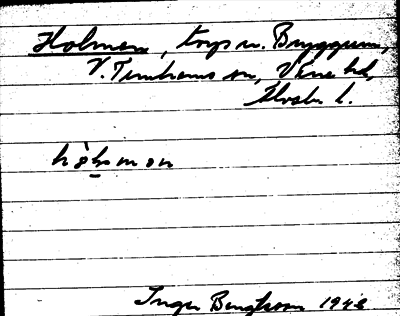 Holmen, torp u. Bryggum,
V. Tunhems sn, Väne hd,
Älvsb. l.
hòlmən
Inger Bengtsson 1948